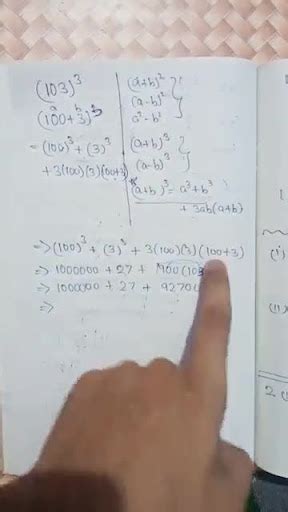 (103)³
(100+3)³
a b
= (100)³ + (3)³
+ 3(100)(3)(100+3)
(a+b)²
(a-b)²
a²-b²
(a+b)³
(a-b)³
(a+b)³ = a³+b³
+ 3ab(a+b)
=> (100)³ + (3)³ + 3(100)(3)(100+3)
=> 1000000 + 27 + 900(103
=> 1000000 + 27 + 9270
=>
(i)
2